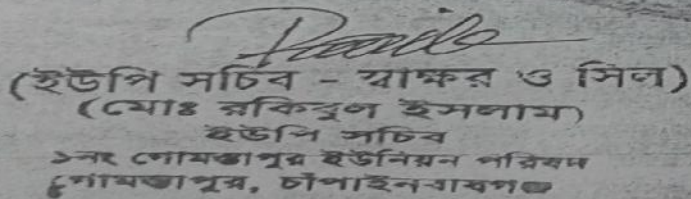 (ইউপি সচিব - স্বাক্ষর ও সিল)
(মোঃ রকিবুল ইসলাম)
ইউপি সচিব
১নং গোমস্তাপুর ইউনিয়ন পরিষদ
গোমস্তাপুর, চাঁপাইনবাবগঞ্জ